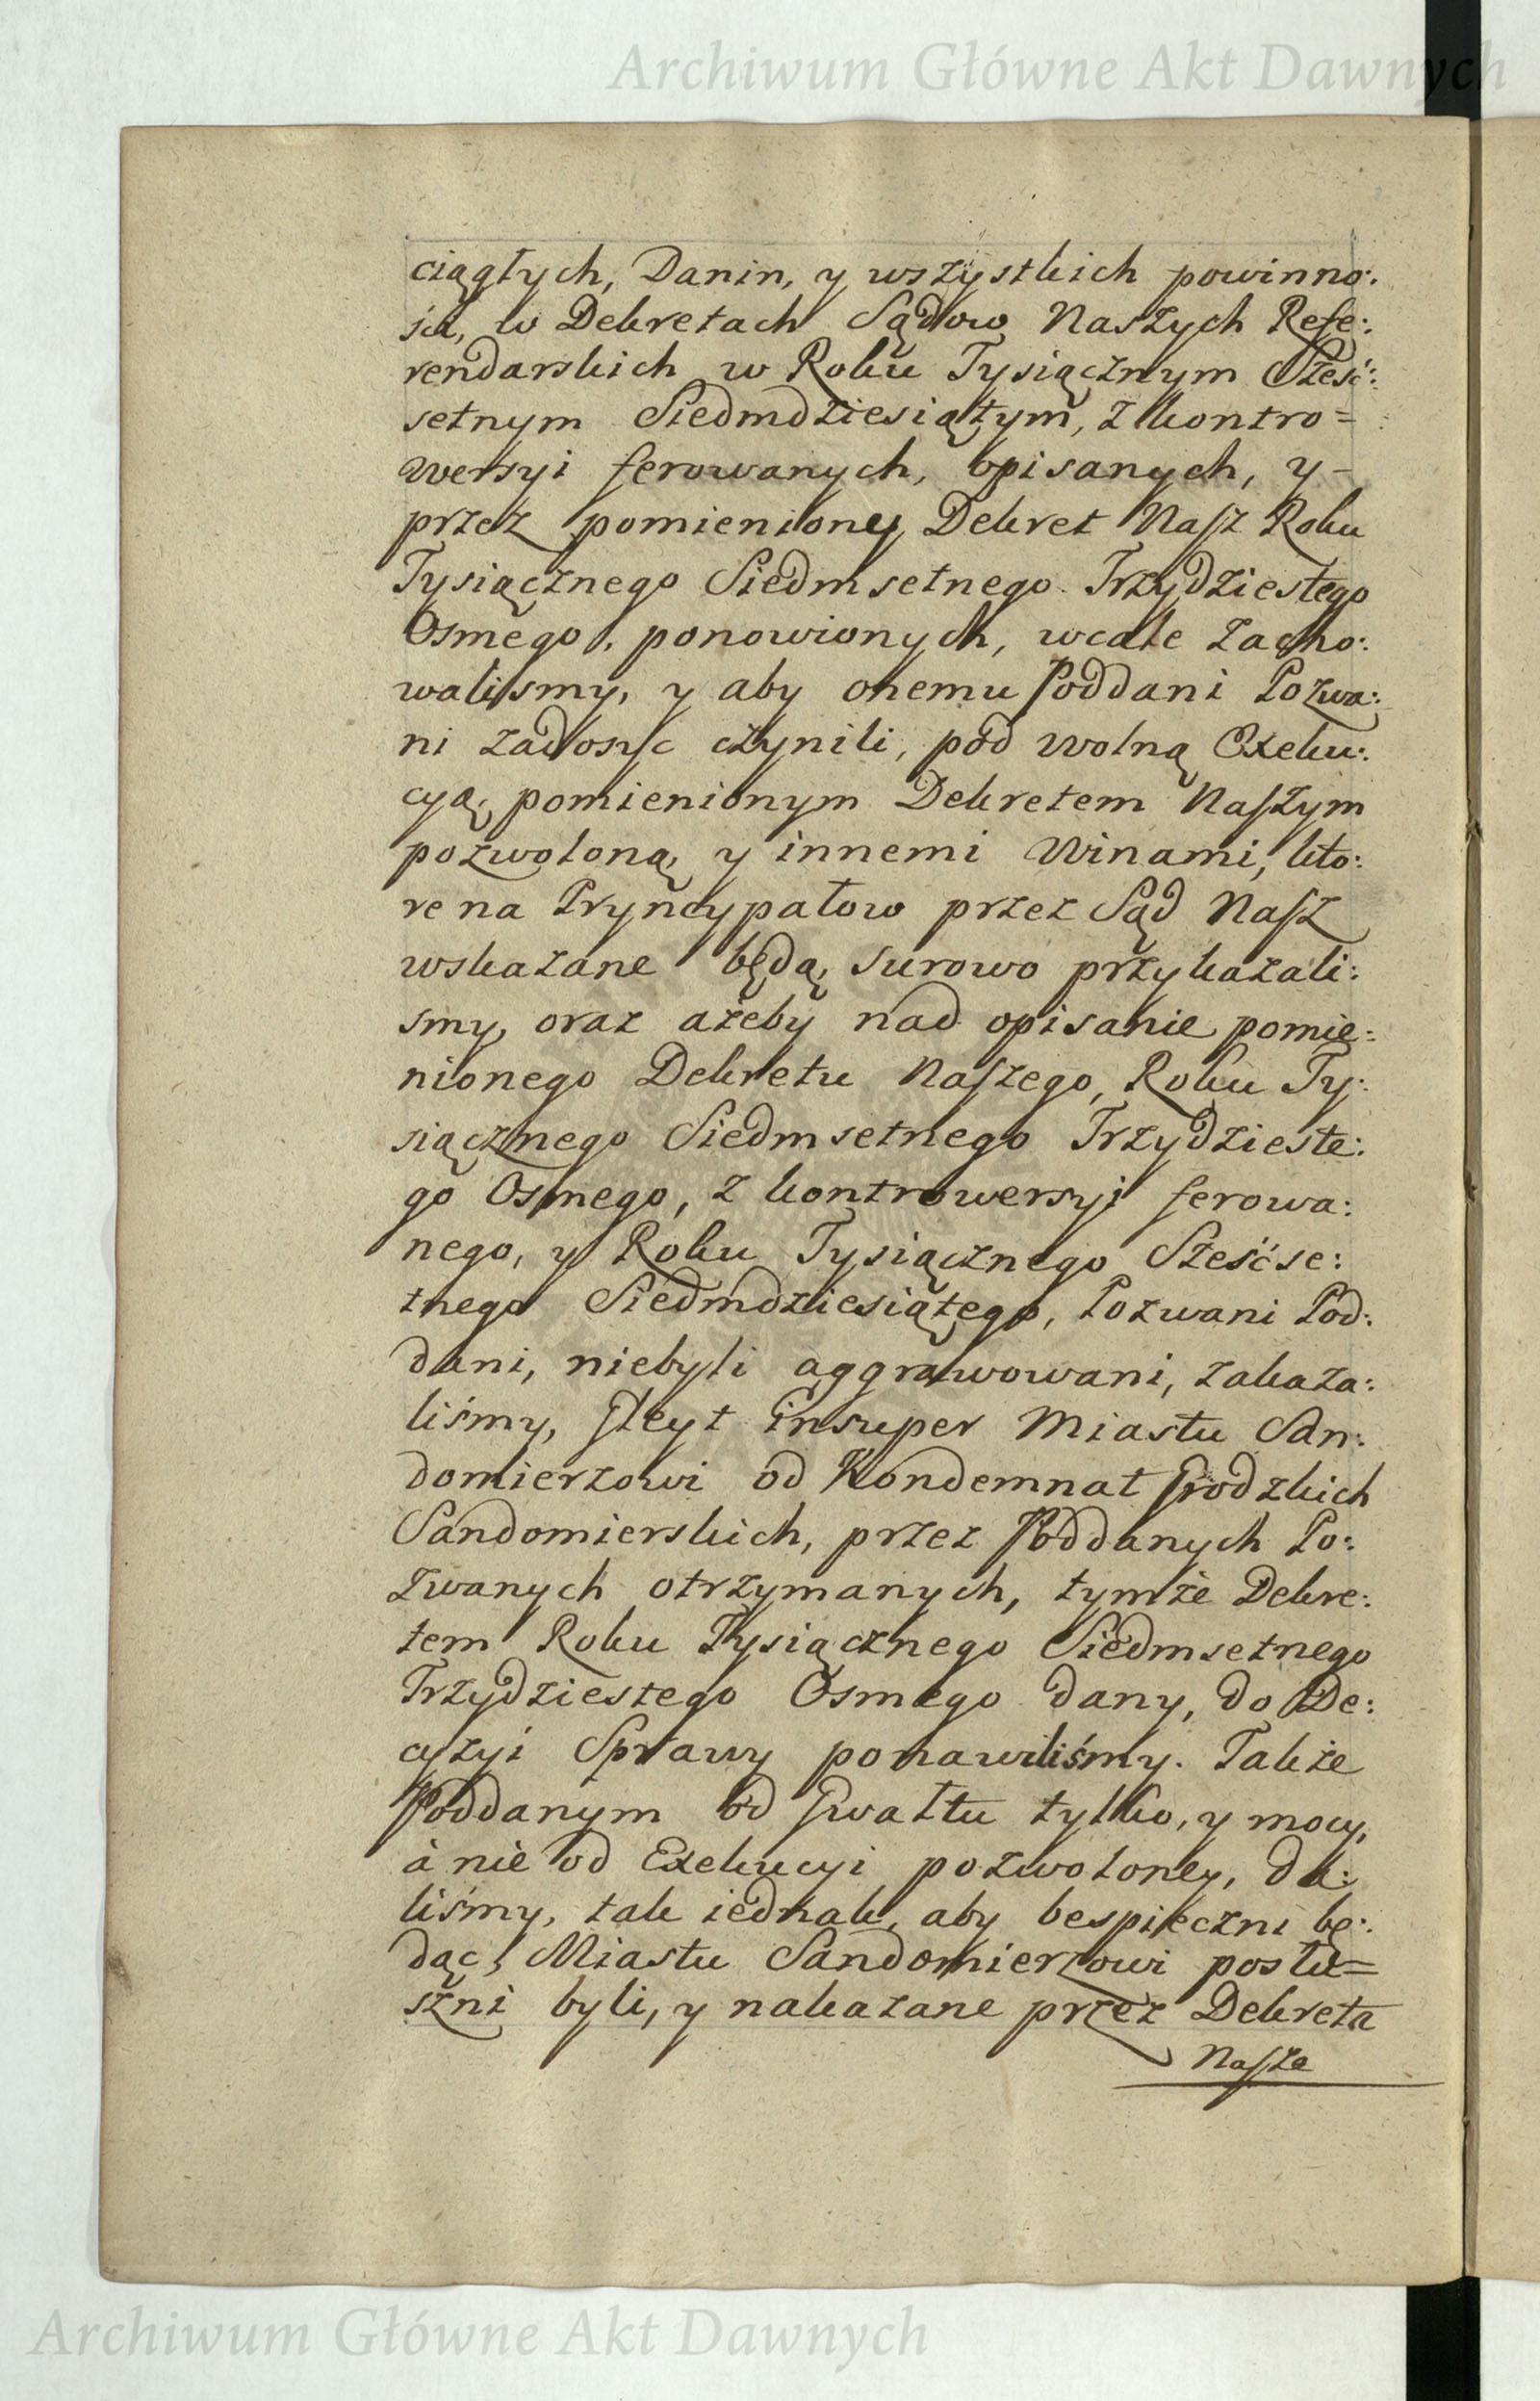 Archiwum Główne Akt Dawnych
ciągłych, Danin, y wszystkich powinno:
ści, w Dekretach Sądow Naszych Refe:
rendarskich w Roku Tysiącznym Sześć:
setnym Siedmdziesiątym, z kontro=
wersyi ferowanych, opisanych, y-
przez pomieniony Dekret Nasz Roku
Tysiącznego Siedmsetnego Trzydziestego
Osmego, ponowionych, wcale zacho:
walismy, y aby onemu Poddani Pozwa:
ni zadosyc czynili, pod wolną Exeku:
cyą, pomienionym Dekretem Naszym
pozwoloną, y innemi Winami, kto:
re na Pryncypałow przez Sąd Nasz
wskazane będą, surowo przykazali:
smy, oraz ażeby nad opisanie pomie:
nionego Dekretu Naszego, Roku Ty:
siącznego Siedmsetnego Trzydzieste:
go Osmego, z kontrowersyi ferowa:
nego, y Roku Tysiącznego Sześćse:
tnego Siedmdziesiątego, Pozwani Pod:
dani, niebyli aggrawowani, zakaza:
liśmy, Gleyt insuper Miastu San:
domierzowi od Kondemnat Grodzkich
Sandomierskich, przez Poddanych Po:
zwanych otrzymanych, tymże Dekre:
tem Roku Tysiącznego Siedmsetnego
Trzydziestego Osmego dany, do De:
cyzyi Sprawy ponawiliśmy. Także
Poddanym od Gwałtu tylko, y mocy,
à nie od Exekucyi pozwoloney, da:
liśmy, tak iednak, aby bespieczni bę:
dąc, Miastu Sandomierzowi posłu=
szni byli, y nakazane przez Dekreta
Nasze
Archiwum Główne Akt Dawnych